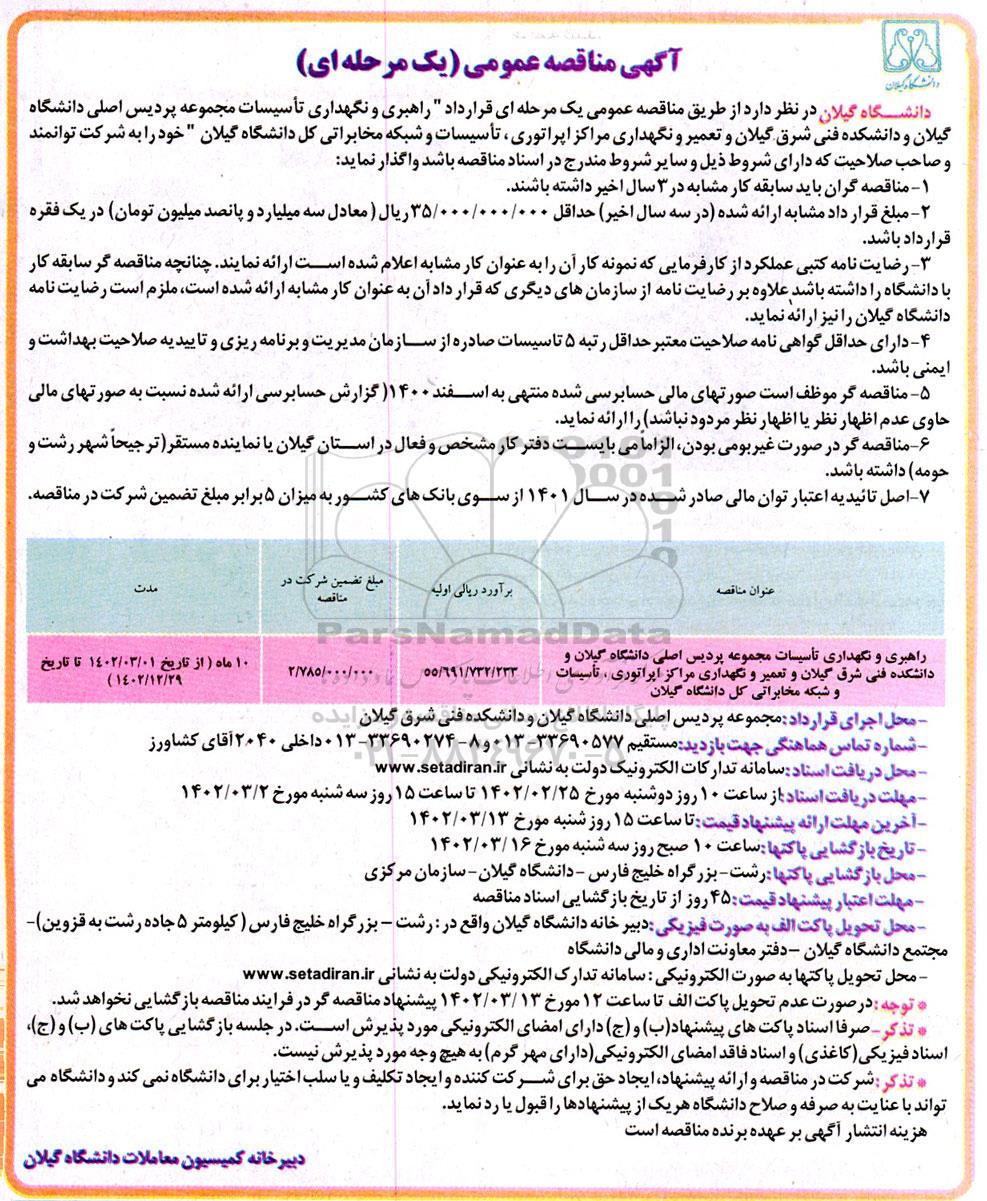 دانشگاه گیلان
آگهی مناقصه عمومی (یک مرحله ای)
دانشـــگاه گیلان در نظر دارد از طریق مناقصه عمومی یک مرحله ای قرارداد "راهبری و نگهداری تأسیسات مجموعه پردیس اصلی دانشگاه
گیلان و دانشکده فنی شرق گیلان و تعمیر و نگهداری مراکز اپراتوری ، تأسیسات و شبکه مخابراتی کل دانشگاه گیلان " خود را به شرکت توانمند
و صاحب صلاحیت که دارای شروط ذیل و سایر شروط مندرج در اسناد مناقصه باشد واگذار نماید:
۱- مناقصه گران باید سابقه کار مشابه در ۳ سال اخیر داشته باشند.
۲- مبلغ قرار داد مشابه ارائه شده (در سه سال اخیر) حداقل ۳۵/۰۰۰/۰۰۰/۰۰۰ ریال ( معادل سه میلیارد و پانصد میلیون تومان) در یک فقره
قرارداد باشد.
۳- رضایت نامه کتبی عملکرد از کارفرمایی که نمونه کار آن را به عنوان کار مشابه اعلام شده اســت ارائه نمایند. چنانچه مناقصه گر سابقه کار
با دانشگاه را داشته باشد علاوه بر رضایت نامه از سازمان های دیگری که قرار داد آن به عنوان کار مشابه ارائه شده است، ملزم است رضایت نامه
دانشگاه گیلان را نیز ارائه نماید.
۴- دارای حداقل گواهی نامه صلاحیت معتبر حداقل رتبه ۵ تاسیسات صادره از ســـازمان مدیریت و برنامه ریزی و تاییدیه صلاحیت بهداشت و
ایمنی باشد.
۵- مناقصه گر موظف است صورتهای مالی حسابرسی شده منتهی به اســـفند ۱۴۰۰( گزارش حسابرسی ارائه شده نسبت به صورتهای مالی
حاوی عدم اظهار نظر یا اظهار نظر مردود نباشد) را ارائه نماید.
۶-مناقصه گر در صورت غیربومی بودن، الزاماً می بایســت دفتر کار مشخص و فعال در اســتان گیلان یا نماینده مستقر(ترجیحاً شهر رشت و
حومه) داشته باشد.
۷-اصل تائیدیه اعتبار توان مالی صادر شــده در ســال ۱۴۰۱ از ســوی بانک های کشــور به میزان ۵ برابر مبلغ تضمین شرکت در مناقصه.
عنوان مناقصه
برآورد ریالی اولیه
مبلغ تضمین شرکت در
مناقصه
مدت
راهبری و نگهداری تأسیسات مجموعه پردیس اصلی دانشگاه گیلان و
دانشکده فنی شرق گیلان و تعمیر و نگهداری مراکز اپراتوری ، تأسیسات
و شبکه مخابراتی کل دانشگاه گیلان
۵۵/۶۹۱/۷۳۲/۲۳۳
۲/۷۸۵/۰۰۰/۰۰۰
۱۰ ماه ( از تاریخ ۱۴۰۲/۰۳/۰۱ تا تاریخ
۱۴۰۲/۱۲/۲۹ )
ParsNamadData
-محل اجرای قرارداد:مجموعه پردیس اصلی دانشگاه گیلان و دانشکده فنی شرق گیلان
-شماره تماس هماهنگی جهت بازدید:مستقیم ۳۳۶۹۰۵۷۷-۰۱۳ و ۸-۳۳۶۹۰۲۷۴-۰۱۳ داخلی ۲۰۴۰ آقای کشاورز
۰۲۱-۸۸۳۴۹۶۷۰-۵
-محل دریافت اسناد:سامانه تدارکات الکترونیک دولت به نشانی www.setadiran.ir
-مهلت دریافت اسناد:از ساعت ۱۰ روز دوشنبه مورخ ۱۴۰۲/۰۲/۲۵ تا ساعت ۱۵ روز سه شنبه مورخ ۱۴۰۲/۰۳/۲
-آخرین مهلت ارائه پیشنهاد قیمت:تا ساعت ۱۵ روز شنبه مورخ ۱۴۰۲/۰۳/۱۳
-تاریخ بازگشایی پاکتها:ساعت ۱۰ صبح روز سه شنبه مورخ ۱۴۰۲/۰۳/۱۶
-محل بازگشایی پاکتها:رشت- بزرگراه خلیج فارس -دانشگاه گیلان-سازمان مرکزی
-مهلت اعتبار پیشنهاد قیمت:۴۵ روز از تاریخ بازگشایی اسناد مناقصه
-محل تحویل پاکت الف به صورت فیزیکی:دبیر خانه دانشگاه گیلان واقع در : رشت – بزرگراه خلیج فارس ( کیلومتر ۵ جاده رشت به قزوین)-
مجتمع دانشگاه گیلان –دفتر معاونت اداری و مالی دانشگاه
-محل تحویل پاکتها به صورت الکترونیکی : سامانه تدارک الکترونیکی دولت به نشانی www.setadiran.ir
* توجه: در صورت عدم تحویل پاکت الف تا ساعت ۱۲ مورخ ۱۴۰۲/۰۳/۱۳ پیشنهاد مناقصه گر در فرایند مناقصه بازگشایی نخواهد شد.
* تذکر- صرفا اسناد پاکت های پیشنهاد(ب) و (ج) دارای امضای الکترونیکی مورد پذیرش اســت. در جلسه بازگشایی پاکت های (ب) و (ج)،
اسناد فیزیکی(کاغذی) و اسناد فاقد امضای الکترونیکی(دارای مهر گرم) به هیچ وجه مورد پذیرش نیست.
* تذکر: شرکت در مناقصه و ارائه پیشنهاد، ایجاد حق برای شــرکت کننده و ایجاد تکلیف و یا سلب اختیار برای دانشگاه نمی کند و دانشگاه می
تواند با عنایت به صرفه و صلاح دانشگاه هر یک از پیشنهادها را قبول یا رد نماید.
هزینه انتشار آگهی بر عهده برنده مناقصه است
دبیرخانه کمیسیون معاملات دانشگاه گیلان